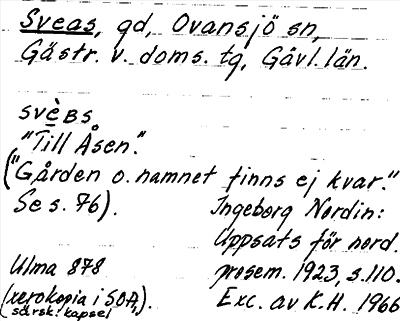 Sveas, gd, Ovansjö sn,
Gästr. v. doms. tg, Gävl. län.
svèBs
"Till Åsen".
("Gården o. namnet finns ej kvar."
Se s. 76).
Ingeborg Nordin:
Uppsats för nord.
Ulma 878
prosem. 1923, s. 110.
(xerokopia i SOA,).
särsk. kapsel
Exc. av K.H. 1966